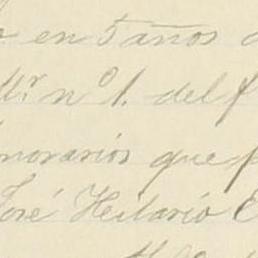 en 5 años
Mr. nº 1. del
norarios que
José Heilario